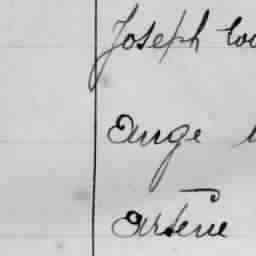 Joseph
Ange
Arsène